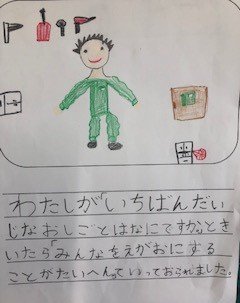 わたしが「いちばんだい
じなおしごとはなにですか」とき
いたら「みんなをえがおにする
ことがたいへん」っていっておられました。